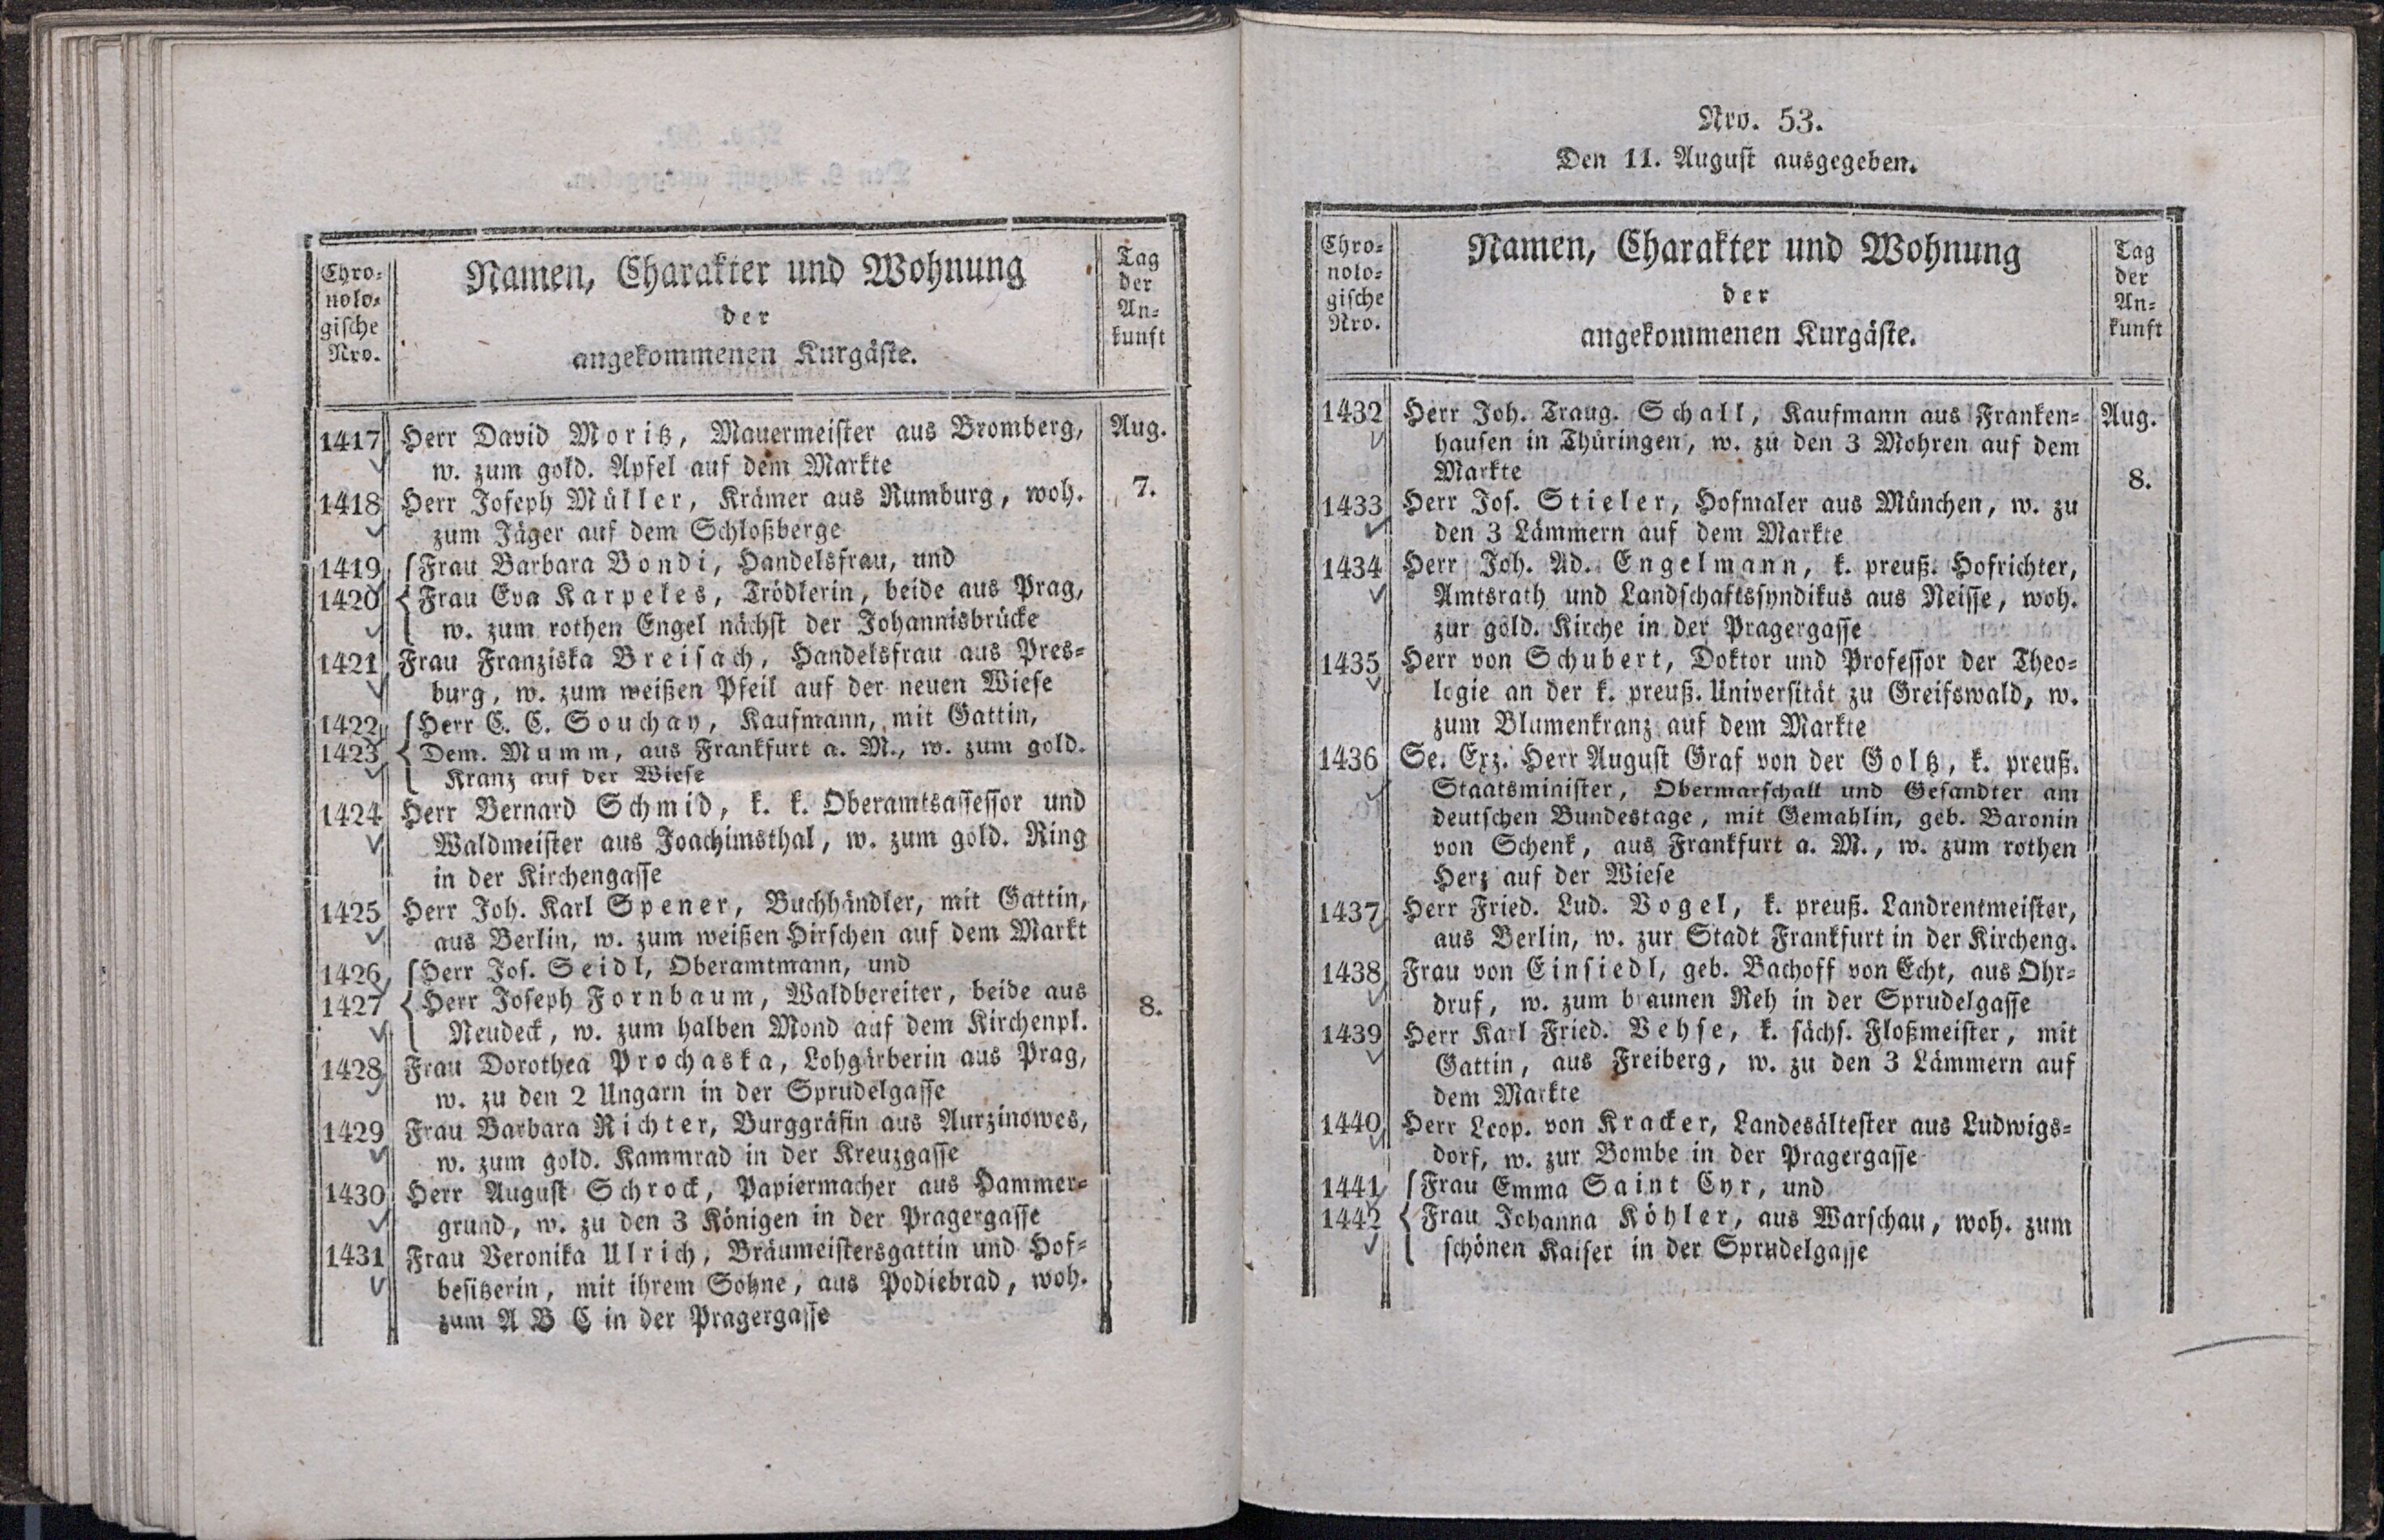 Chro-
nolo-
gische
Nro.
Namen, Charakter und Wohnung
der
angekommenen Kurgäste.
Tag
der
An-
kunft
1417 Herr David Moritz, Mauermeister aus Bromberg, Aug.
w. zum gold. Apfel auf dem Markte
1418 Herr Joseph Müller, Krämer aus Rumburg, woh. 7.
zum Jäger auf dem Schloßberge
1419 Frau Barbara Bondi, Handelsfrau, und
1420 Frau Eva Karpeles, Trödlerin, beide aus Prag,
w. zum rothen Engel nächst der Johannisbrücke
1421 Frau Franziska Breisach, Handelsfrau aus Pres-
burg, w. zum weißen Pfeil auf der neuen Wiese
1422 Herr C. C. Souchay, Kaufmann, mit Gattin,
1423 Dem. Mumm, aus Frankfurt a. M., w. zum gold.
Kranz auf der Wiese
1424 Herr Bernard Schmid, k. k. Oberamtsassessor und
Waldmeister aus Joachimsthal, w. zum gold. Ring
in der Kirchengasse
1425 Herr Joh. Karl Spener, Buchhändler, mit Gattin,
aus Berlin, w. zum weißen Hirschen auf dem Markt
1426 Herr Jos. Seidl, Oberamtmann, und
1427 Herr Joseph Fornbaum, Waldbereiter, beide aus 8.
Neudeck, w. zum halben Mond auf dem Kirchenpl.
1428 Frau Dorothea Prochaska, Lohgärberin aus Prag,
w. zu den 2 Ungarn in der Sprudelgasse
1429 Frau Barbara Richter, Burggräfin aus Aurzinowes,
w. zum gold. Kammrad in der Kreuzgasse
1430 Herr August Schrock, Papiermacher aus Hammer-
grund, w. zu den 3 Königen in der Pragergasse
1431 Frau Veronika Ulrich, Bräumeistersgattin und Hof-
besitzerin, mit ihrem Sohne, aus Podiebrad, woh.
zum A B C in der Pragergasse
Nro. 53.
Den 11. August ausgegeben.
Chro-
nolo-
gische
Nro.
Namen, Charakter und Wohnung
der
angekommenen Kurgäste.
Tag
der
An-
kunft
1432 Herr Joh. Traug. Schall, Kaufmann aus Franken- Aug.
hausen in Thüringen, w. zu den 3 Mohren auf dem
Markte 8.
1433 Herr Jos. Stieler, Hofmaler aus München, w. zu
den 3 Lämmern auf dem Markte
1434 Herr Joh. Ad. Engelmann, k. preuß. Hofrichter,
Amtsrath und Landschaftssyndikus aus Neisse, woh.
zur gold. Kirche in der Pragergasse
1435 Herr von Schubert, Doktor und Professor der Theo-
logie an der k. preuß. Universität zu Greifswald, w.
zum Blumenkranz auf dem Markte
1436 Se. Exz. Herr August Graf von der Goltz, k. preuß.
Staatsminister, Obermarschall und Gesandter am
deutschen Bundestage, mit Gemahlin, geb. Baronin
von Schenk, aus Frankfurt a. M., w. zum rothen
Herz auf der Wiese
1437 Herr Fried. Lud. Vogel, k. preuß. Landrentmeister,
aus Berlin, w. zur Stadt Frankfurt in der Kircheng.
1438 Frau von Einsiedl, geb. Bachoff von Echt, aus Ohr-
druf, w. zum braunen Reh in der Sprudelgasse
1439 Herr Karl Fried. Vehse, k. sächs. Floßmeister, mit
Gattin, aus Freiberg, w. zu den 3 Lämmern auf
dem Markte
1440 Herr Leop. von Kracker, Landesältester aus Ludwigs-
dorf, w. zur Bombe in der Pragergasse
1441 Frau Emma Saint Cyr, und
1442 Frau Johanna Köhler, aus Warschau, woh. zum
schönen Kaiser in der Sprudelgasse